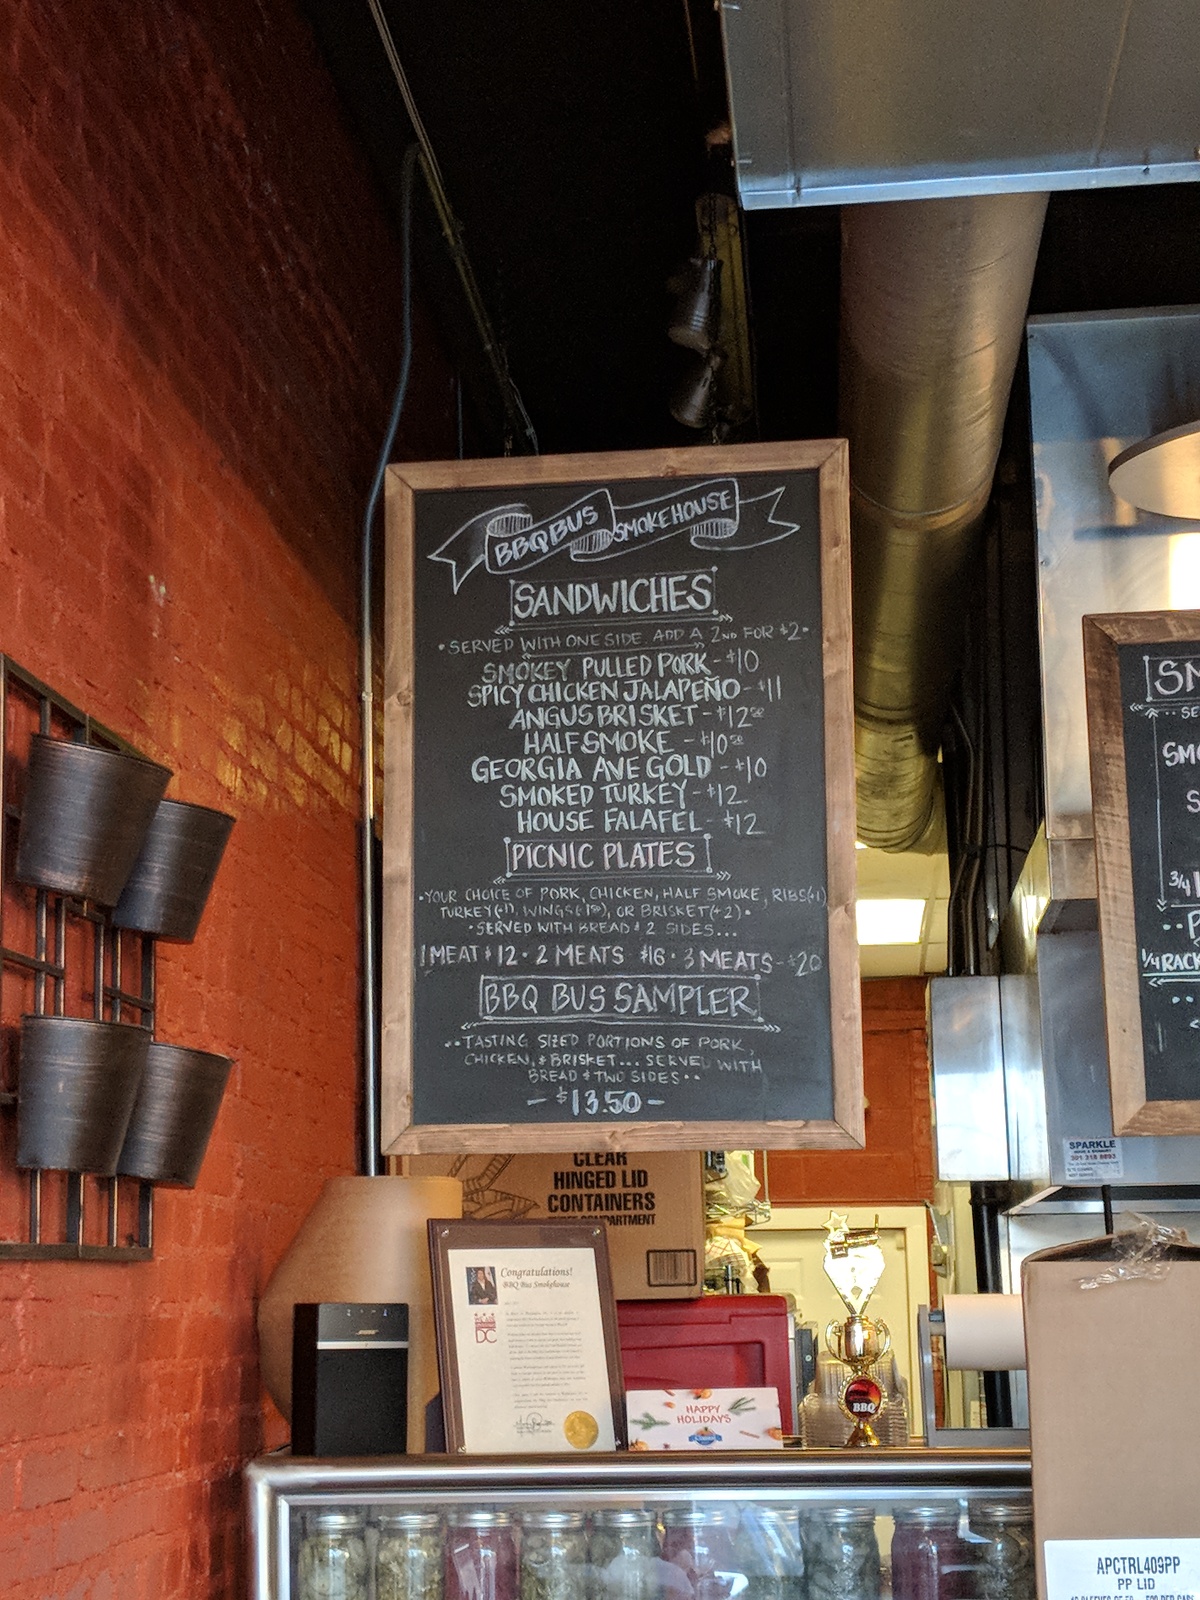 BBQ BUS SMOKEHOUSE
SANDWICHES
• SERVED WITH ONE SIDE. ADD A 2ND FOR $2 •
SMOKEY PULLED PORK - $10
SPICY CHICKEN JALAPEÑO - $11
ANGUS BRISKET - $12.50
HALF SMOKE - $10.50
GEORGIA AVE GOLD - $10
SMOKED TURKEY - $12
HOUSE FALAFEL - $12
PICNIC PLATES
• YOUR CHOICE OF PORK, CHICKEN, HALF SMOKE, RIBS(+1)
TURKEY(+1), WINGS(+1.50), OR BRISKET(+2) •
• SERVED WITH BREAD & 2 SIDES...
1 MEAT $12 • 2 MEATS $16 • 3 MEATS - $20
BBQ BUS SAMPLER
•• TASTING SIZED PORTIONS OF PORK,
CHICKEN, & BRISKET... SERVED WITH
BREAD & TWO SIDES ••
- $13.50 -
SM
SE
SMO
S
3/4
P
1/4 RACK
SPARKLE
CLEAR
HINGED LID
CONTAINERS
COMPARTMENT
Congratulations!
BBQ Bus Smokehouse
DC
BOSE
HAPPY
HOLIDAYS
BBQ
APCTRL409PP
PP LID